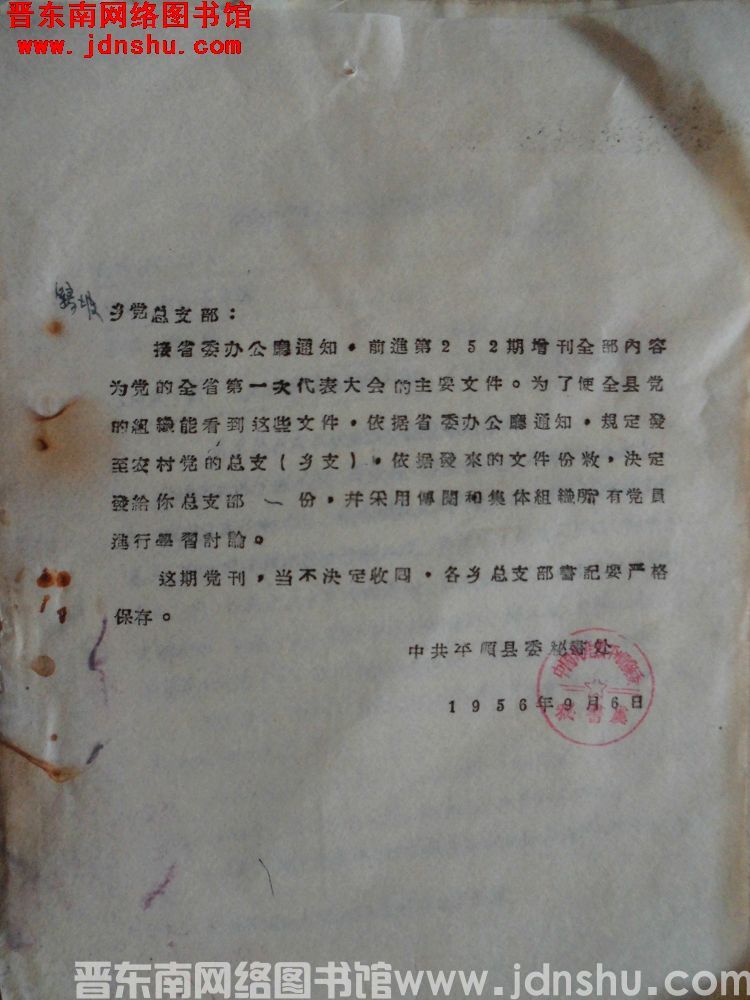 晋东南网络图书馆
www.jdnshu.com
乡党总支部：
接省委办公廳通知，前進第252期增刊全部內容
为党的全省第一次代表大会的主要文件。为了使全县党
的組織能看到这些文件，依据省委办公廳通知，規定發
至农村党的总支（乡支），依据發來的文件份数，决定
發給你总支部 一 份，并采用傳閱和集体組織所有党員
進行學習討論。
这期党刊，当不决定收回，各乡总支部書記要严格
保存。
中共平順县委秘書处
1956年9月6日
秘書處
晋东南网络图书馆www.jdnshu.com